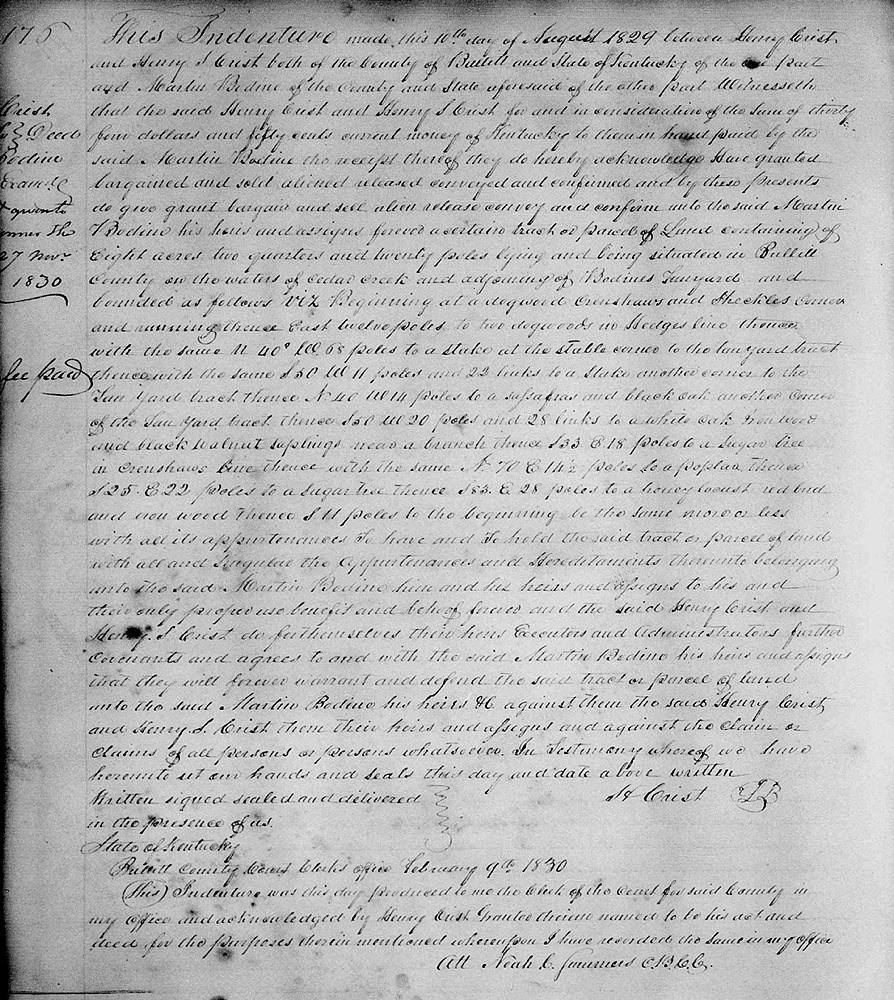 176
This Indenture made this 10th day of August 1829 between Henry Crist
and Henry S Crist both of the County of Bullitt and State of Kentucky of the one part
and Martin Bodine of the County and State aforesaid of the other part Witnesseth
that the said Henry Crist and Henry S Crist for and in consideration of the Sum of thirty
four dollars and fifty cents current money of Kentucky to them in hand paid by the
said Martin Bodine the receipt thereof they do hereby acknowledge Have granted
bargained and sold aliened released conveyed and confirmed and by these Presents
do give grant bargain and sell alien release convey and confirm unto the said Martin
Bodine his heirs and assigns forever a certain tract or parcel of Land containing of
Eight acres two quarters and twenty poles lying and being situated in Bullitt
County on the waters of Cedar Creek and adjoining of Bodines Tanyard and
bounded as follows Viz Beginning at a dogwood Crenshaws and Sheckles Corner
and running thence East twelve poles to two dogwoods in Hedges line thence
with the same N 40° W 68 poles to a stake at the stable corner to the tanyard tract
thence with the same S 50 W 11 poles and 22 links to a Stake another corner to the
Tan Yard tract thence N 40 W 14 poles to a sassafras and black oak another Corner
of the Tan Yard tract thence S 50 W 20 poles and 28 links to a white oak Iron wood
and black walnut saplings near a branch thence S 33 E 18 poles to a Sugar tree
in Crenshaws line thence with the same N 70 E 14½ poles to a poplar thence
S 25 E 22 poles to a Sugar tree thence S 83 E 28 poles to a honey locust red bud
and iron wood thence S 11 poles to the beginning be the same more or less
with all its appurtenances To have and To hold the said tract or parcel of land
with all and Singular the Appurtenances and Hereditaments thereunto belonging
unto the said Martin Bodine him and his heirs and assigns to his and
their only proper use benefit and behoof forever and the said Henry Crist and
Henry S Crist do for themselves their heirs Executors and Administrators further
Covenants and agrees to and with the said Martin Bodine his heirs and assigns
that they will forever warrant and defend the said tract or parcel of land
unto the said Martin Bodine his heirs &C against them the said Henry Crist
and Henry S. Crist them their heirs and assigns and against the Claim or
Claims of all persons or persons whatsoever. In Testimony whereof we have
hereunto set our hands and seals this day and date above written
Written signed sealed and delivered H Crist
in the presence of us.
State of Kentucky
Bullitt County Court Clerks office February 9th 1830
(This) Indenture was this day produced to me the Clerk of the Court for said County in
my office and acknowledged by Henry Crist Grantor therein named to be his act and
deed for the purposes therein mentioned whereupon I have recorded the same in my office
Att Noah C. Summers C.B.C.C.
Crist
Deed
Bodine
27 Novr
1830
fee paid